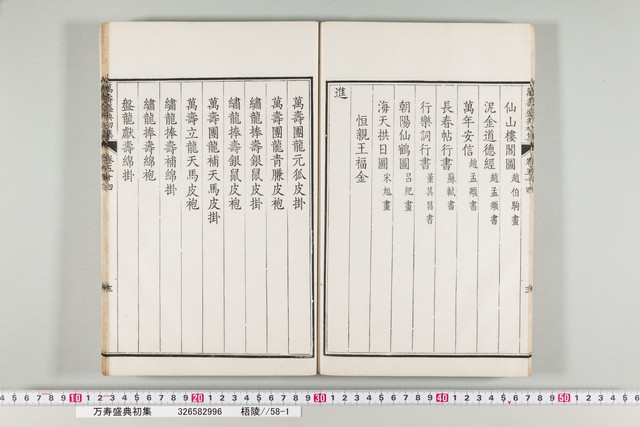 仙山樓閣圖 趙伯駒畫
泥金道德經 趙孟頫書
萬年安信 趙孟頫書
長春帖行書 蘇軾書
行樂詞行書 董其昌書
朝陽仙鶴圖 呂紀畫
海天拱日圖 宋旭畫
恒親王福金
進
萬壽團龍元狐皮掛
萬壽團龍青膁皮袍
繡龍捧壽銀鼠皮掛
繡龍捧壽銀鼠皮袍
萬壽團龍補天馬皮掛
萬壽立龍天馬皮袍
繡龍捧壽補綿掛
繡龍捧壽綿袍
盤龍獻壽綿掛
万寿盛典初集 326582996 梧陵//58-1
10 20 30 40 50